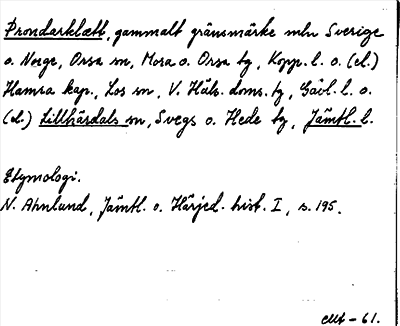 Prondarklätt, gammalt gränsmärke mln Sverige
o. Norge, Orsa sn, Mora o. Orsa tg, Kopp. l. o. (el.)
Hamra kap., Los sn, V. Häls. doms. tg, Gävl. l. o.
(el.) Lillhärdals sn, Svegs o. Hede tg, Jämtl. l.
Etymologi.
N. Ahnlund, Jämtl. o. Härjed. hist. I, s. 195.
-61.